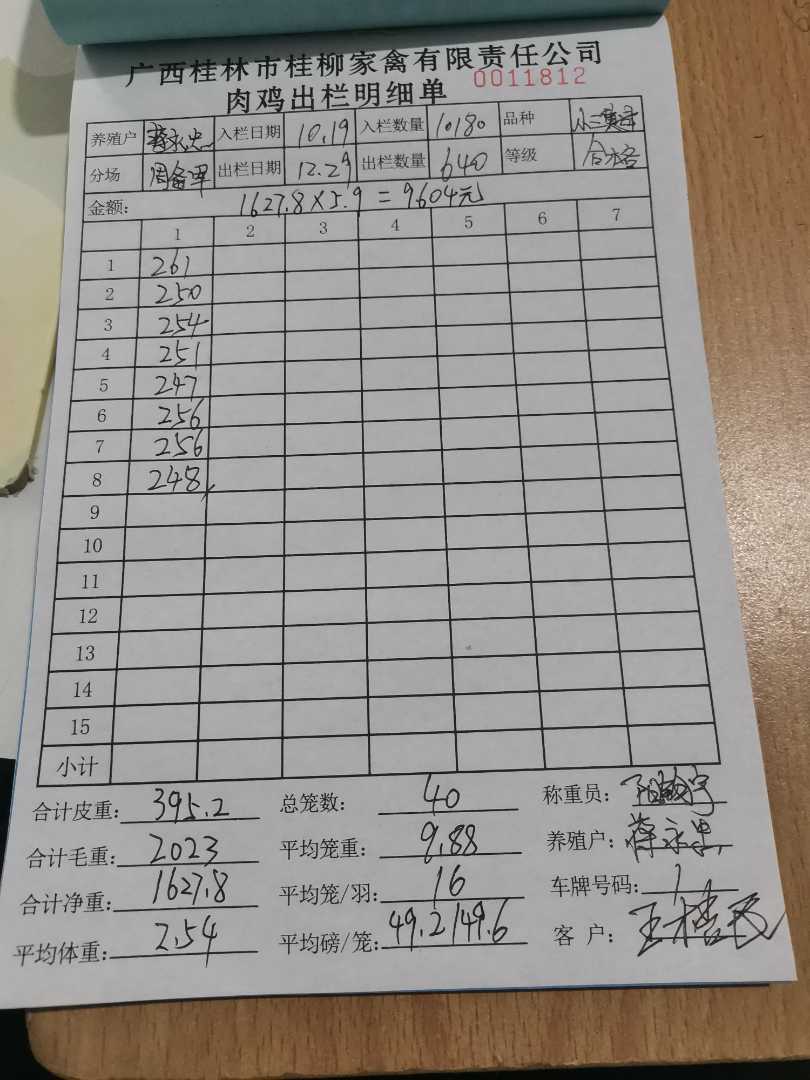 广西桂林市桂柳家禽有限责任公司
肉鸡出栏明细单 0011812
养殖户 蒋永忠 入栏日期 10.19 入栏数量 10180 品种
分场 出栏日期 12.29 出栏数量 640 等级 合格
金额: 1627.8×5.9=9604元
1 2 3 4 5 6 7
1 261
2 250
3 254
4 251
5 247
6 256
7 256
8 248
9
10
11
12
13
14
15
小计
合计皮重: 395.2 总笼数: 40 称重员:
合计毛重: 2023 平均笼重: 9.88 养殖户: 蒋永忠
合计净重: 1627.8 平均笼/羽: 16 车牌号码:
平均体重: 2.54 平均磅/笼: 49.2/49.6 客 户: